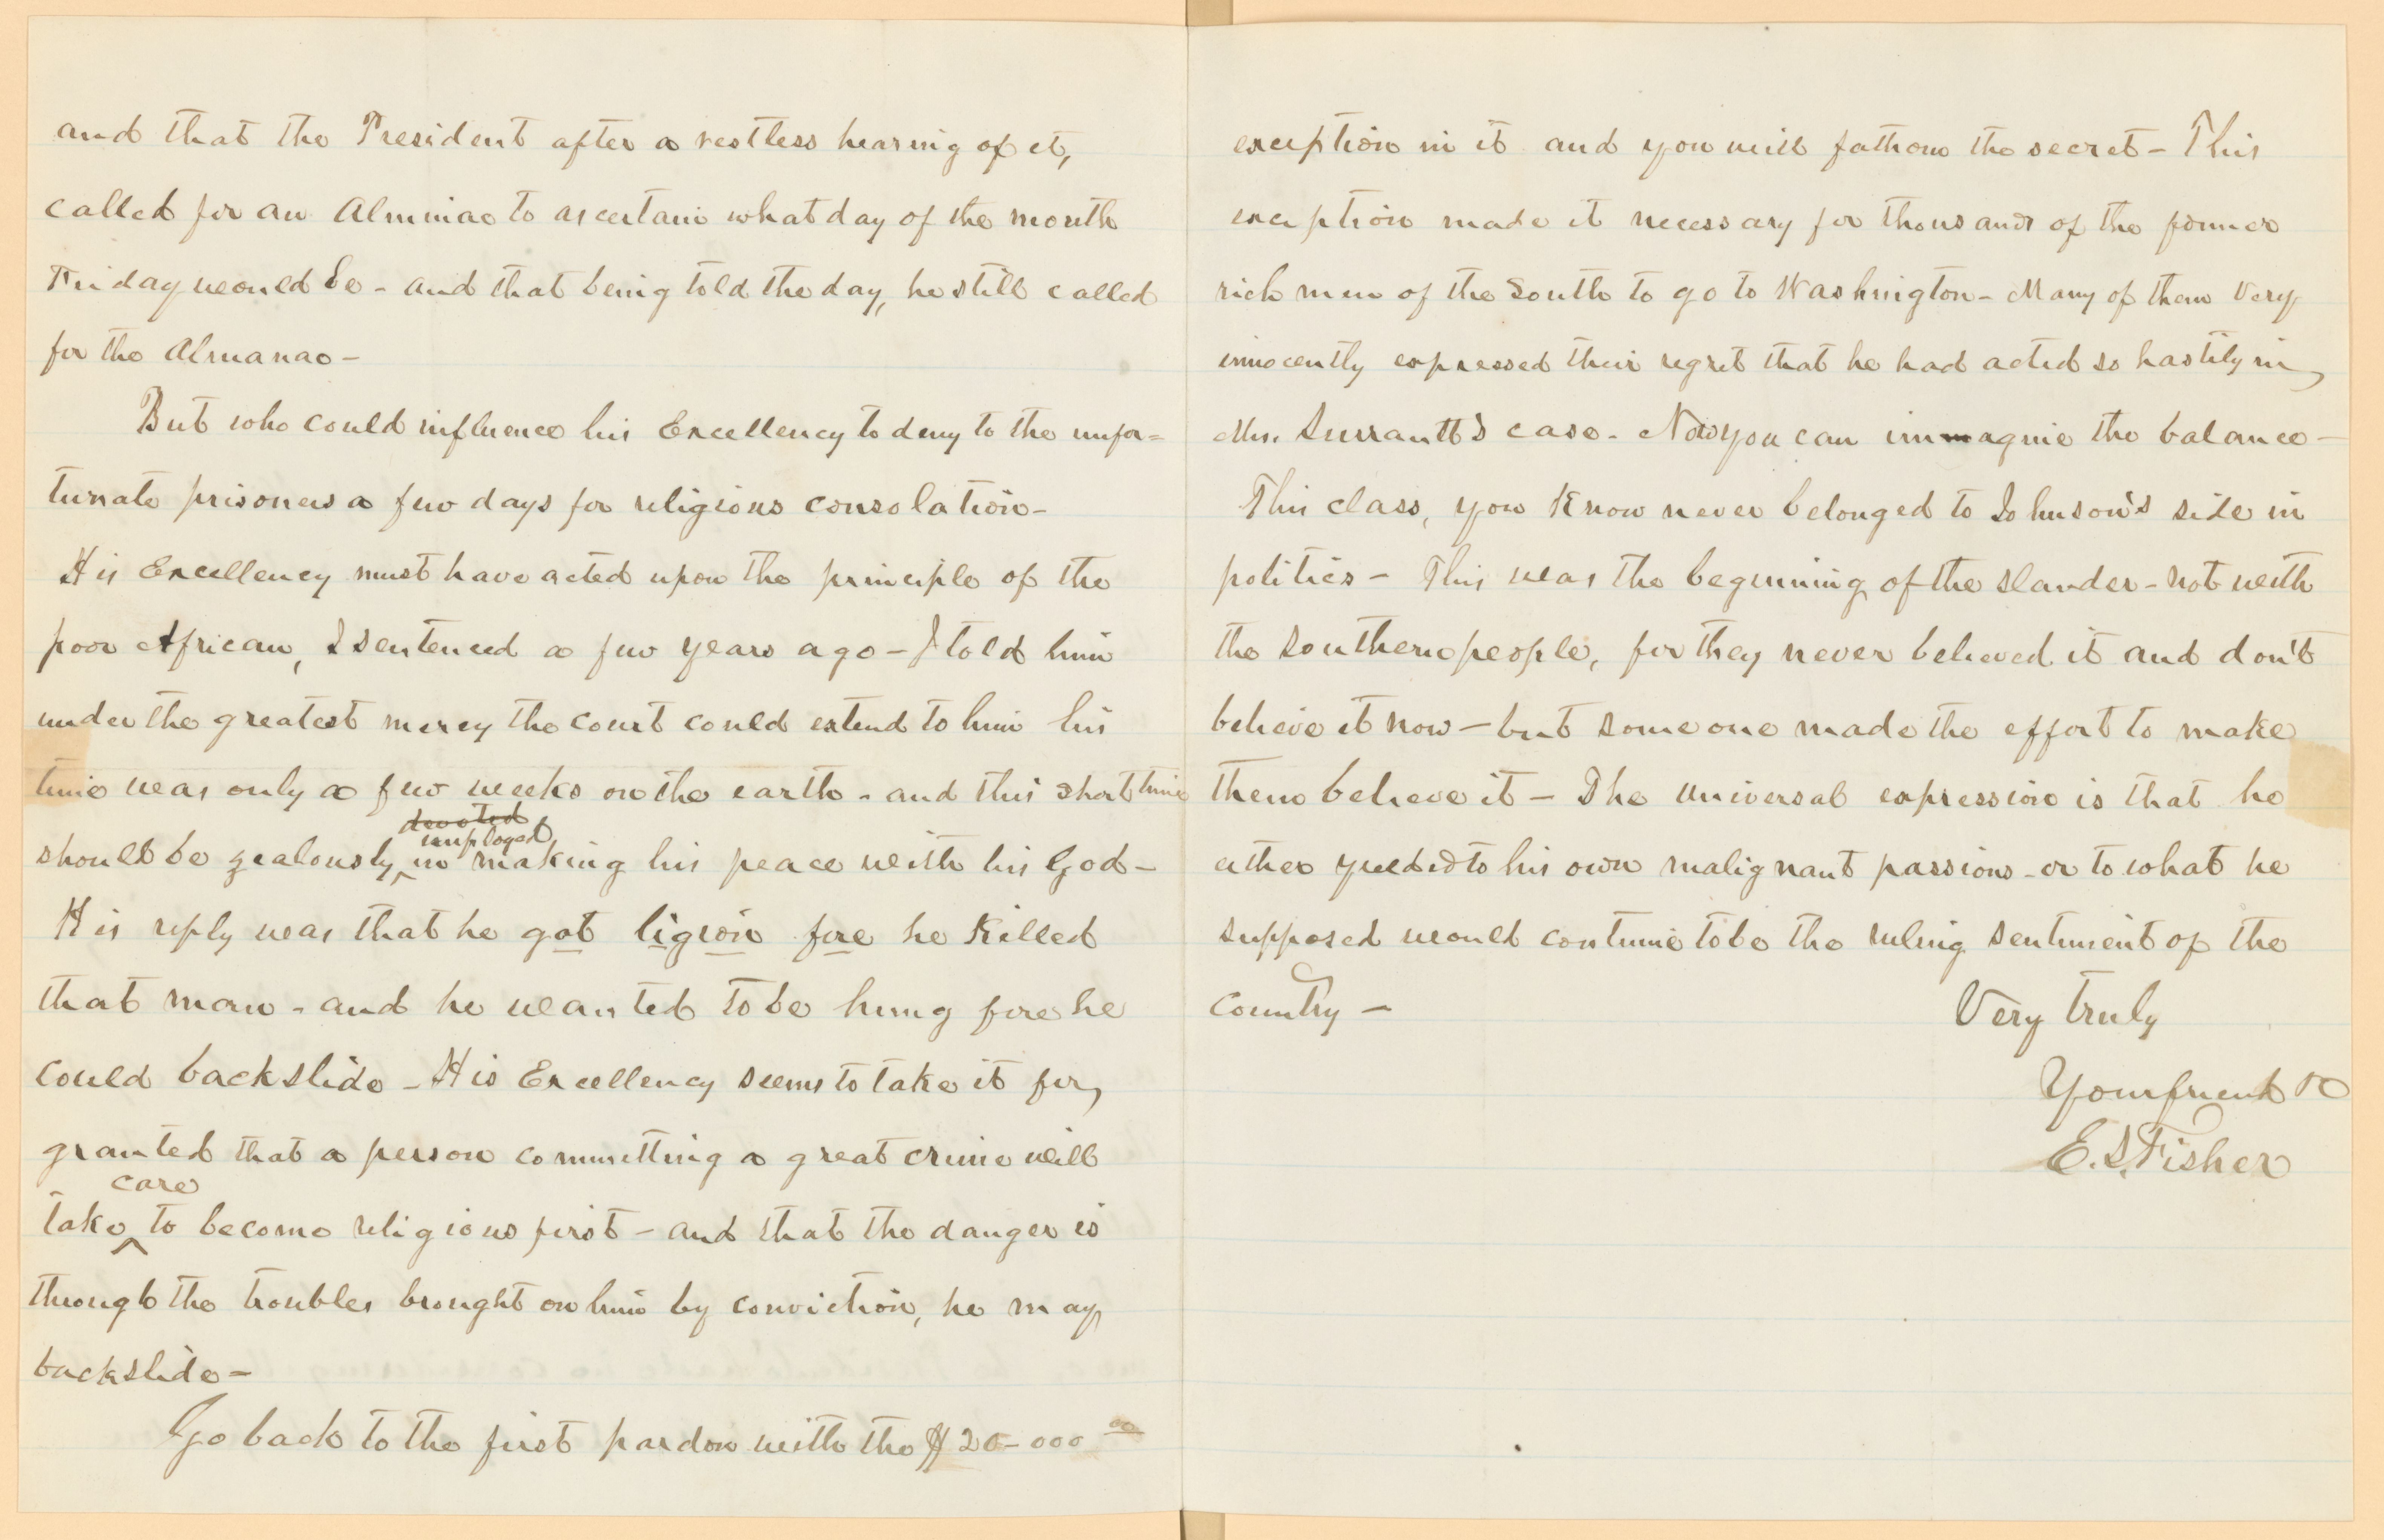 and that the President after a restless hearing of it,
called for an Almniac to ascertain what day of the month
Friday would be - and that being told the day, he still called
for the Almanac -
But who could influence his Excellency to deny to the unfor=
tunate prisoners a few days for religious consolation -
His Excellency must have acted upon the principle of the
poor African, I sentenced a few years ago - I told him
under the greatest mercy the court could extend to him his
time was only a few weeks on the earth - and this short time
devoted
employed
should be zealously in making his peace with his God -
His reply was that he got ligion fore he killed
that man - and he wanted to be hung fore he
could backslide - His Excellency seems to take it for,
granted that a person committing a great crime will
care
take to become religious first - and that the danger is
through the troubles brought on him by conviction, he may
backslide -
Go back to the first pardon with the $20-000 00
exception in it and you will fathom the secret - This
exception made it necessary for thousands of the former
rich men of the South to go to Washington - Many of them very
innocently expressed their regret that he had acted so hastily in,
Mrs. Surrantt's case - Now you can immagine the balance -
This class, you know never belonged to Johnson's side in
politics - This was the beginning of the slander - not with
the Southern people, for they never believed it and don't
believe it now - but some one made the effort to make
them believe it - The universal expression is that he
either yielded to his own malignant passions - or to what he
supposed would continue to be the ruling sentiment of the
country -
Very truly
Your friend &c
E. S. Fisher